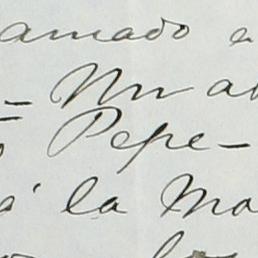 amado
= Un ab
Pepe-
á la Ma